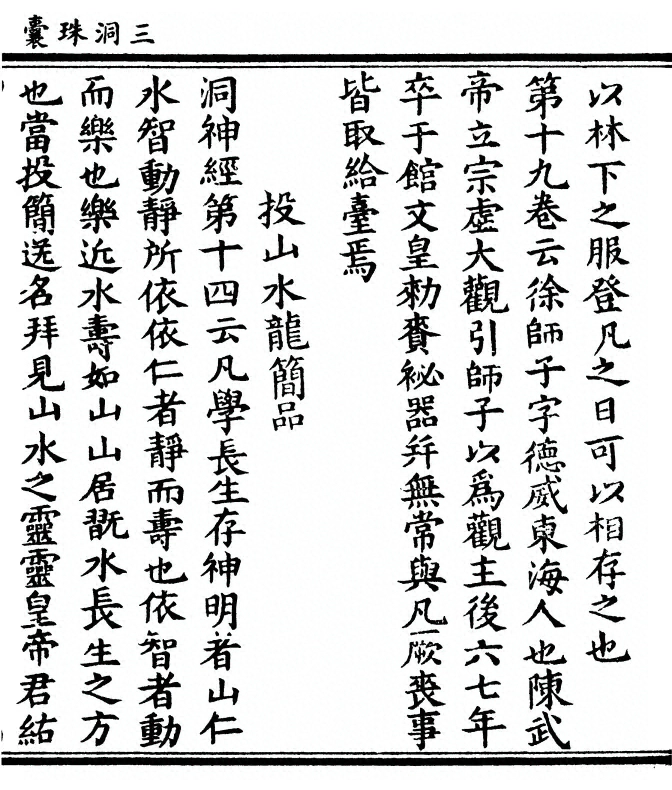 三洞珠囊
以林下之服登凡之日可以相存之也
第十九卷云徐師子字德威東海人也陳武
帝立宗虛大觀引師子以為觀主後六七年
卒于館文皇勑賚祕器并無常與凡厥喪事
皆取給臺焉
投山水龍簡品
洞神經第十四云凡學長生存神明者山仁
水智動靜所依依仁者靜而壽也依智者動
而樂也樂近水壽如山山居翫水長生之方
也當投簡送名拜見山水之靈靈皇帝君結